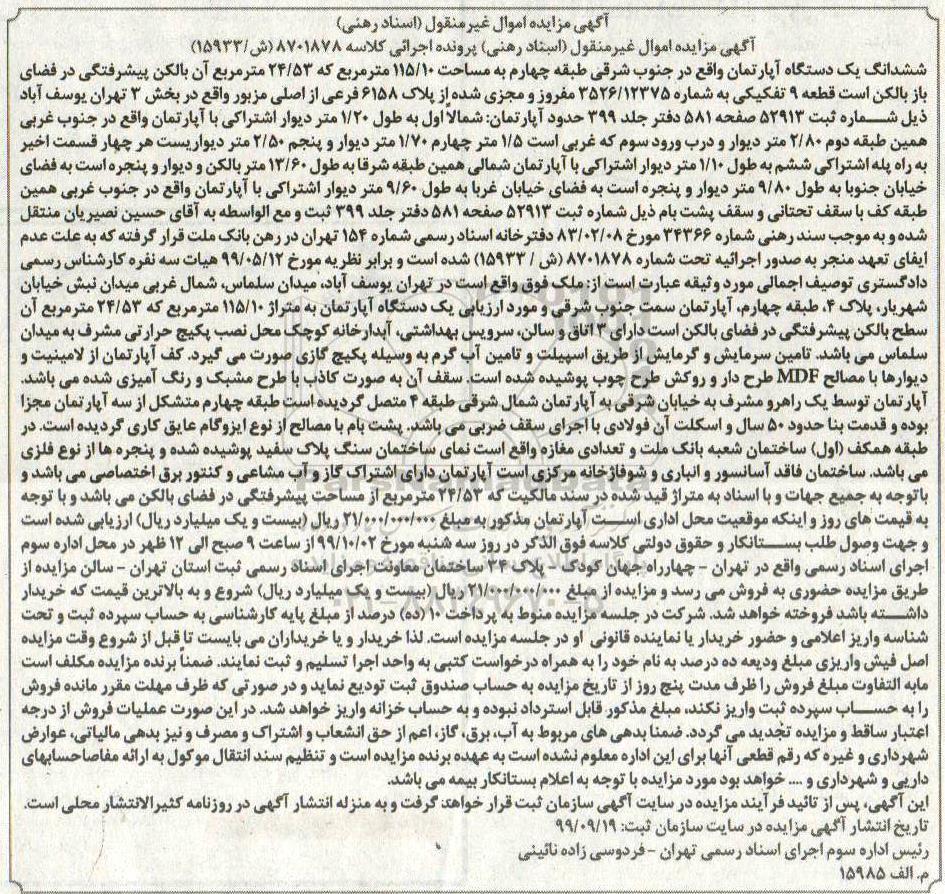 آگهی مزایده اموال غیرمنقول (اسناد رهنی)
آگهی مزایده اموال غیرمنقول (اسناد رهنی) پرونده اجرائی کلاسه ۸۷۰۱۸۷۸ (ش/۱۵۹۳۳)
ششدانگ یک دستگاه آپارتمان واقع در جنوب شرقی طبقه چهارم به مساحت ۱۱۵/۱۰ مترمربع که ۲۴/۵۳ مترمربع آن بالکن پیشرفتگی در فضای
باز بالکن است قطعه ۹ تفکیکی به شماره ۳۵۲۶/۱۲۳۷۵ مفروز و مجزی شده از پلاک ۶۱۵۸ فرعی از اصلی مزبور واقع در بخش ۳ تهران یوسف آباد
ذیل شماره ثبت ۵۲۹۱۳ صفحه ۵۸۱ دفتر جلد ۳۹۹ حدود آپارتمان: شمالاً اول به طول ۱/۲۰ متر دیوار اشتراکی با آپارتمان واقع در جنوب غربی
همین طبقه دوم ۲/۸۰ متر دیوار و درب ورود سوم که غربی است ۱/۵ متر چهارم ۱/۷۰ متر دیوار و پنجم ۲/۵۰ متر دیواریست هر چهار قسمت اخیر
به راه پله اشتراکی ششم به طول ۱/۱۰ متر دیوار اشتراکی با آپارتمان شمالی همین طبقه شرقا به طول ۱۳/۶۰ متر بالکن و دیوار و پنجره است به فضای
خیابان جنوبا به طول ۹/۸۰ متر دیوار و پنجره است به فضای خیابان غربا به طول ۹/۶۰ متر دیوار اشتراکی با آپارتمان واقع در جنوب غربی همین
طبقه کف با سقف تحتانی و سقف پشت بام ذیل شماره ثبت ۵۲۹۱۳ صفحه ۵۸۱ دفتر جلد ۳۹۹ ثبت و مع الواسطه به آقای حسین نصیریان منتقل
شده و به موجب سند رهنی شماره ۳۴۳۶۶ مورخ ۸۳/۰۲/۰۸ دفترخانه اسناد رسمی شماره ۱۵۴ تهران در رهن بانک ملت قرار گرفته که به علت عدم
ایفای تعهد منجر به صدور اجرائیه تحت شماره ۸۷۰۱۸۷۸ (ش / ۱۵۹۳۳) شده است و برابر نظریه مورخ ۹۹/۰۵/۱۲ هیات سه نفره کارشناس رسمی
دادگستری توصیف اجمالی مورد وثیقه عبارت است از: ملک فوق واقع است در تهران یوسف آباد، میدان سلماس، شمال غربی میدان نبش خیابان
شهریار، پلاک ۴، طبقه چهارم، آپارتمان سمت جنوب شرقی و مورد ارزیابی یک دستگاه آپارتمان به متراژ ۱۱۵/۱۰ مترمربع که ۲۴/۵۳ مترمربع آن
سطح بالکن پیشرفتگی در فضای بالکن است دارای ۳ اتاق و سالن، سرویس بهداشتی، آبدارخانه کوچک محل نصب پکیج حرارتی مشرف به میدان
سلماس می باشد. تامین سرمایش و گرمایش از طریق اسپیلت و تامین آب گرم به وسیله پکیج گازی صورت می گیرد. کف آپارتمان از لامینیت و
دیوارها با مصالح MDF طرح دار و روکش طرح چوب پوشیده شده است. سقف آن به صورت کاذب با طرح مشبک و رنگ آمیزی شده می باشد.
آپارتمان توسط یک راهرو مشرف به خیابان شرقی به آپارتمان شمال شرقی طبقه ۴ متصل گردیده است طبقه چهارم متشکل از سه آپارتمان مجزا
بوده و قدمت بنا حدود ۵۰ سال و اسکلت آن فولادی با اجرای سقف ضربی می باشد. پشت بام با مصالح از نوع ایزوگام عایق کاری گردیده است. در
طبقه همکف (اول) ساختمان شعبه بانک ملت و تعدادی مغازه واقع است نمای ساختمان سنگ پلاک سفید پوشیده شده و پنجره ها از نوع فلزی
می باشد. ساختمان فاقد آسانسور و انباری و شوفاژخانه مرکزی است آپارتمان دارای اشتراک گاز و آب مشاعی و کنتور برق اختصاصی می باشد و
باتوجه به جمیع جهات و با اسناد به متراژ قید شده در سند مالکیت که ۲۴/۵۳ مترمربع از مساحت پیشرفتگی در فضای بالکن می باشد و با توجه
به قیمت های روز و اینکه موقعیت محل اداری است آپارتمان مذکور به مبلغ ۲۱/۰۰۰/۰۰۰/۰۰۰ ریال (بیست و یک میلیارد ریال) ارزیابی شده است
و جهت وصول طلب بستانکار و حقوق دولتی کلاسه فوق الذکر در روز سه شنبه مورخ ۹۹/۱۰/۰۲ از ساعت ۹ صبح الی ۱۲ ظهر در محل اداره سوم
اجرای اسناد رسمی واقع در تهران - چهارراه جهان کودک - پلاک ۳۴ ساختمان معاونت اجرای اسناد رسمی ثبت استان تهران - سالن مزایده از
طریق مزایده حضوری به فروش می رسد و مزایده از مبلغ ۲۱/۰۰۰/۰۰۰/۰۰۰ ریال (بیست و یک میلیارد ریال) شروع و به بالاترین قیمت که خریدار
داشته باشد فروخته خواهد شد. شرکت در جلسه مزایده منوط به پرداخت ۱۰ (ده) درصد از مبلغ پایه کارشناسی به حساب سپرده ثبت و تحت
شناسه واریز اعلامی و حضور خریدار یا نماینده قانونی او در جلسه مزایده است. لذا خریدار و یا خریداران می بایست تا قبل از شروع وقت مزایده
اصل فیش واریزی مبلغ ودیعه ده درصد به نام خود را به همراه درخواست کتبی به واحد اجرا تسلیم و ثبت نمایند. ضمناً برنده مزایده مکلف است
مابه التفاوت مبلغ فروش را ظرف مدت پنج روز از تاریخ مزایده به حساب صندوق ثبت تودیع نماید و در صورتی که ظرف مهلت مقرر مانده فروش
را به حساب سپرده ثبت واریز نکند، مبلغ مذکور قابل استرداد نبوده و به حساب خزانه واریز خواهد شد. در این صورت عملیات فروش از درجه
اعتبار ساقط و مزایده تجدید می گردد. ضمنا بدهی های مربوط به آب، برق، گاز، اعم از حق انشعاب و اشتراک و مصرف و نیز بدهی مالیاتی، عوارض
شهرداری و غیره که رقم قطعی آنها برای این اداره معلوم نشده است به عهده برنده مزایده است و تنظیم سند انتقال موکول به ارائه مفاصاحسابهای
داریی و شهرداری و .... خواهد بود مورد مزایده با توجه به اعلام بستانکار بیمه می باشد.
این آگهی، پس از تائید فرآیند مزایده در سایت آگهی سازمان ثبت قرار خواهد گرفت و به منزله انتشار آگهی در روزنامه کثیرالانتشار محلی است.
تاریخ انتشار آگهی مزایده در سایت سازمان ثبت: ۹۹/۰۹/۱۹
رئیس اداره سوم اجرای اسناد رسمی تهران - فردوسی زاده نائینی
م. الف ۱۵۹۸۵